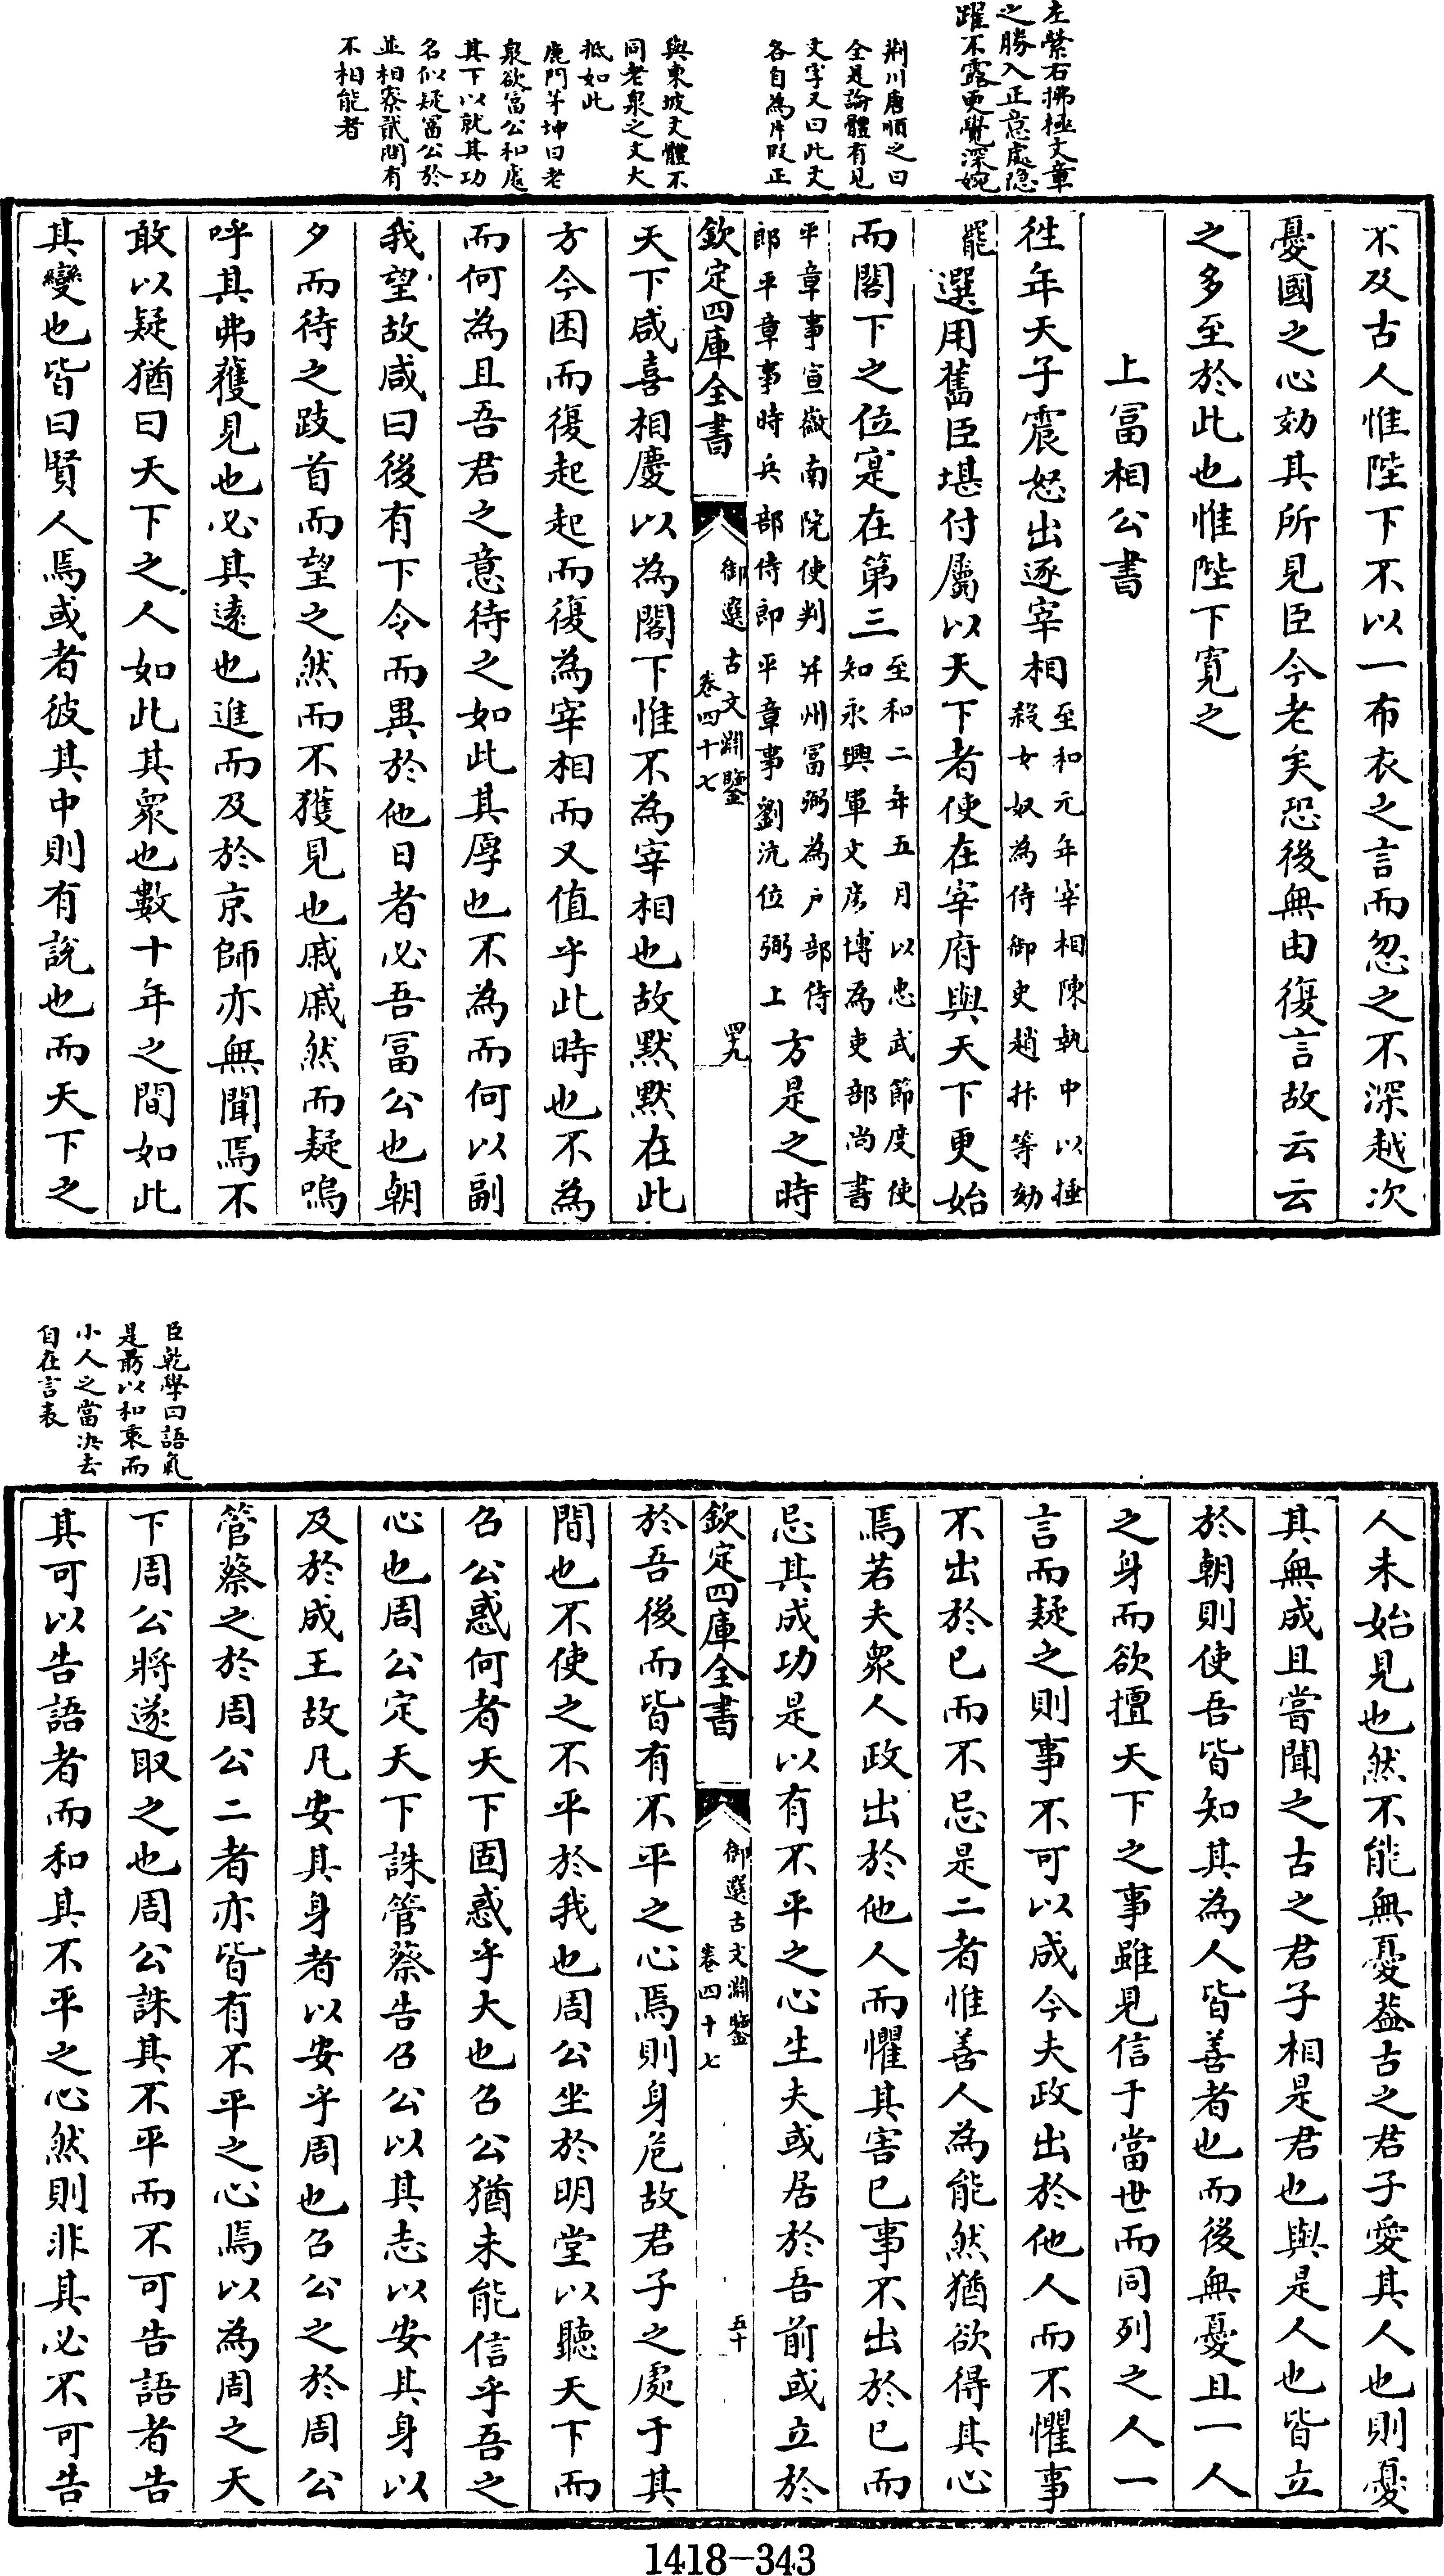 左縈右拂極文章
之勝入正意處隐
躍不露更覺深婉
荆川唐順之曰
全是論體有見
文字又曰此文
各自為片段正
與東坡文體不
同老泉之文大
抵如此
鹿門茅坤曰老
泉欲富公和處
其下以就其功
名似疑富公於
並相寮貳間有
不相能者
不及古人惟陛下不以一布衣之言而忽之不深越次
憂國之心効其所見臣今老矣恐後無由復言故云云
之多至於此也惟陛下寛之
上富相公書
徃年天子震怒出逐宰相至和元年宰相陳執中以捶
殺女奴為侍御史趙抃等劾
罷選用舊臣堪付屬以天下者使在宰府與天下更始
而閣下之位寔在第三至和二年五月以忠武節度使
知永興軍文彦博為吏部尚書
平章事宣徽南院使判并州富弼為户部侍
郎平章事時兵部侍郎平章事劉沆位弼上方是之時
欽定四庫全書
御選古文淵鑒
卷四十七
四十九
天下咸喜相慶以為閣下惟不為宰相也故默默在此
方今困而復起起而復為宰相而又值乎此時也不為
而何為且吾君之意待之如此其厚也不為而何以副
我望故咸曰後有下令而異於他日者必吾富公也朝
夕而待之跂首而望之然而不獲見也戚戚然而疑嗚
呼其弗獲見也必其遠也進而及於京師亦無聞焉不
敢以疑猶曰天下之人如此其衆也數十年之間如此
其變也皆曰賢人焉或者彼其中則有說也而天下之
臣乾學曰語氣
是前以和衷而
小人之當决去
自在言表
人未始見也然不能無憂葢古之君子愛其人也則憂
其無成且嘗聞之古之君子相是君也與是人也皆立
於朝則使吾皆知其為人皆善者也而後無憂且一人
之身而欲擅天下之事雖見信于當世而同列之人一
言而疑之則事不可以成今夫政出於他人而不懼事
不出於已而不忌是二者惟善人為能然猶欲得其心
焉若夫衆人政出於他人而懼其害已事不出於已而
忌其成功是以有不平之心生夫或居於吾前或立於
欽定四庫全書
御選古文淵鑒
卷四十七
五十
於吾後而皆有不平之心焉則身危故君子之處于其
間也不使之不平於我也周公坐於明堂以聽天下而
召公惑何者天下固惑乎大也召公猶未能信乎吾之
心也周公定天下誅管蔡告召公以其志以安其身以
及於成王故凡安其身者以安乎周也召公之於周公
管蔡之於周公二者亦皆有不平之心焉以為周之天
下周公將遂取之也周公誅其不平而不可告語者告
其可以告語者而和其不平之心然則非其必不可告
1418-343